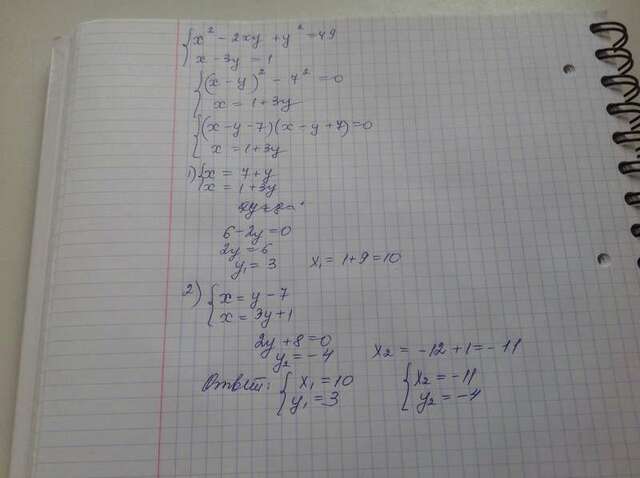 {x² - 2xy + y² = 49
x - 3y = 1
{(x - y)² - 7² = 0
x = 1 + 3y
{(x - y - 7)(x - y + 7) = 0
x = 1 + 3y
1) {x = 7 + y
x = 1 + 3y
6 - 2y = 0
2y = 6
y₁ = 3 x₁ = 1 + 9 = 10
2) {x = y - 7
x = 3y + 1
2y + 8 = 0
y₂ = -4 x₂ = -12 + 1 = -11
Ответ: {x₁ = 10 {x₂ = -11
y₁ = 3 y₂ = -4